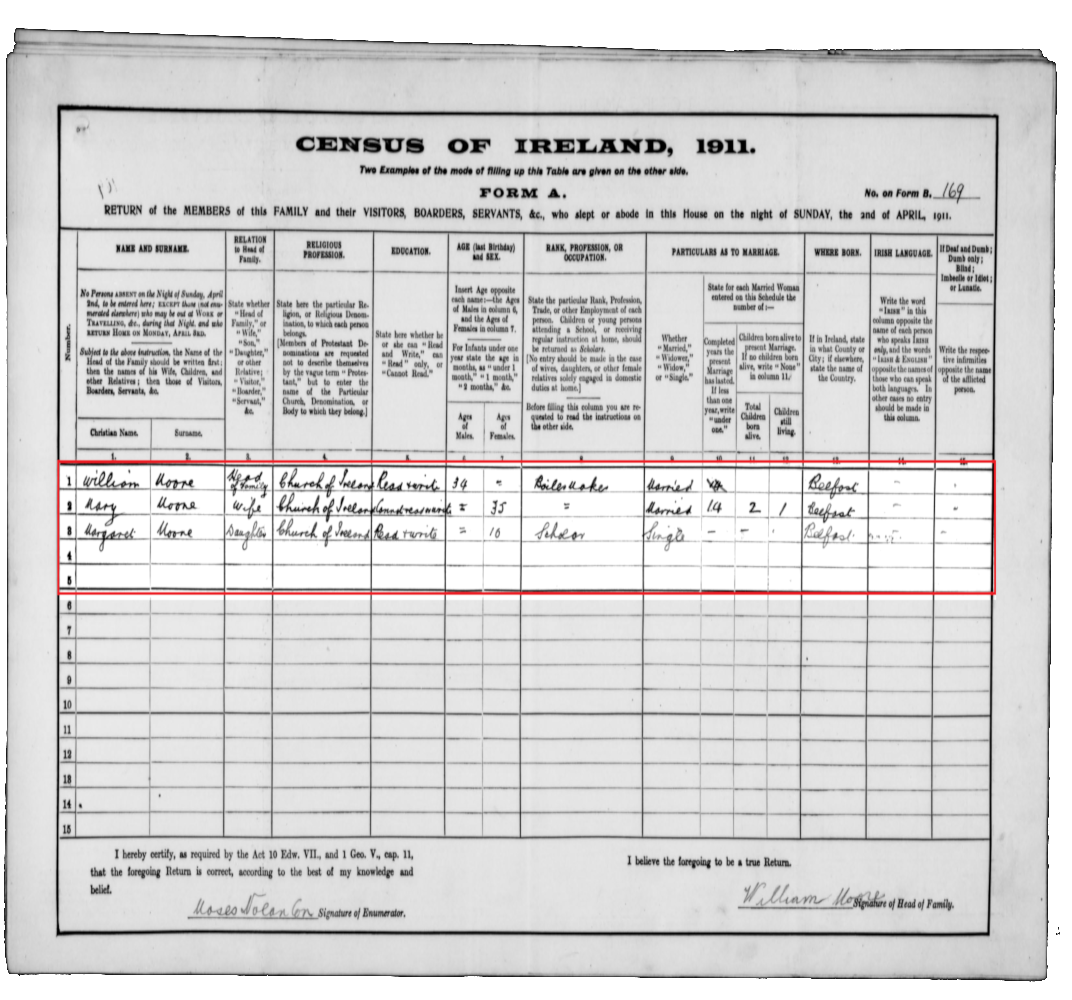 CENSUS OF IRELAND, 1911.
Two Examples of the mode of filling up this Table are given on the other side.
FORM A.
No. on Form B. 169
RETURN of the MEMBERS of this FAMILY and their VISITORS, BOARDERS, SERVANTS, &c., who slept or abode in this House on the night of SUNDAY, the 2nd of APRIL, 1911.
Number.
NAME AND SURNAME.
No Persons ABSENT on the Night of Sunday, April
2nd, to be entered here; EXCEPT those (not enu-
merated elsewhere) who may be out at WORK or
TRAVELLING, &c., during that Night, and who
RETURN HOME ON MONDAY, APRIL 3RD.
Subject to the above instruction, the Name of the
Head of the Family should be written first;
then the names of his Wife, Children, and
other Relatives; then those of Visitors,
Boarders, Servants, &c.
Christian Name. Surname.
RELATION
to Head of
Family.
State whether
"Head of
Family," or
"Wife,"
"Son,"
"Daughter,"
or other
Relative;
"Visitor,"
"Boarder,"
"Servant,"
&c.
RELIGIOUS
PROFESSION.
State here the particular Re-
ligion, or Religious Denom-
ination, to which each person
belongs.
[Members of Protestant De-
nominations are requested
not to describe themselves
by the vague term "Protes-
tant," but to enter the
name of the Particular
Church, Denomination, or
Body to which they belong.]
EDUCATION.
State here whether he
or she can "Read
and Write," can
"Read" only, or
"Cannot Read."
AGE (last Birthday)
and SEX.
Insert Age opposite
each name:—the Ages
of Males in column 6,
and the Ages of
Females in column 7.
For Infants under one
year state the age in
months, as "under 1
month," "1 month,"
"2 months," &c.
Ages
of
Males.
Ages
of
Females.
RANK, PROFESSION, OR
OCCUPATION.
State the particular Rank, Profession,
Trade, or other Employment of each
person. Children or young persons
attending a School, or receiving
regular instruction at home, should
be returned as Scholars.
[No entry should be made in the case
of wives, daughters, or other female
relatives solely engaged in domestic
duties at home.]
Before filling this column you are re-
quested to read the instructions on
the other side.
PARTICULARS AS TO MARRIAGE.
Whether
"Married,"
"Widower,"
"Widow,"
or "Single."
State for each Married Woman
entered on this Schedule the
number of:—
Completed
years the
present
Marriage
has lasted.
If less
than one
year, write
"under
one."
Children born alive to
present Marriage.
If no children born
alive, write "None"
in column 11.
Total
Children
born
alive.
Children
still
living.
WHERE BORN.
If in Ireland, state
in what County or
City; if elsewhere,
state the name of
the Country.
IRISH LANGUAGE.
Write the word
"IRISH" in this
column opposite the
name of each person
who speaks IRISH
only, and the words
"IRISH & ENGLISH"
opposite the names of
those who can speak
both languages. In
other cases no entry
should be made in
this column.
If Deaf and Dumb;
Dumb only;
Blind;
Imbecile or Idiot;
or Lunatic.
Write the respec-
tive infirmities
opposite the name
of the afflicted
person.
1. 2. 3. 4. 5. 6. 7. 8. 9. 10. 11. 12. 13. 14. 15.
1 William Moore Head of Family Church of Ireland Read & write 34 " Boiler Maker Married Belfast - "
2 Mary Moore Wife Church of Ireland Cannot read & write " 35 " Married 14 2 1 Belfast - "
3 Margaret Moore Daughter Church of Ireland Read & write " 10 Scholar Single - - Belfast -
4
5
6
7
8
9
10
11
12
13
14
15
I hereby certify, as required by the Act 10 Edw. VII., and 1 Geo. V., cap. 11,
that the foregoing Return is correct, according to the best of my knowledge and
belief.
Moses Nolan Con Signature of Enumerator.
I believe the foregoing to be a true Return.
William Moore Signature of Head of Family.